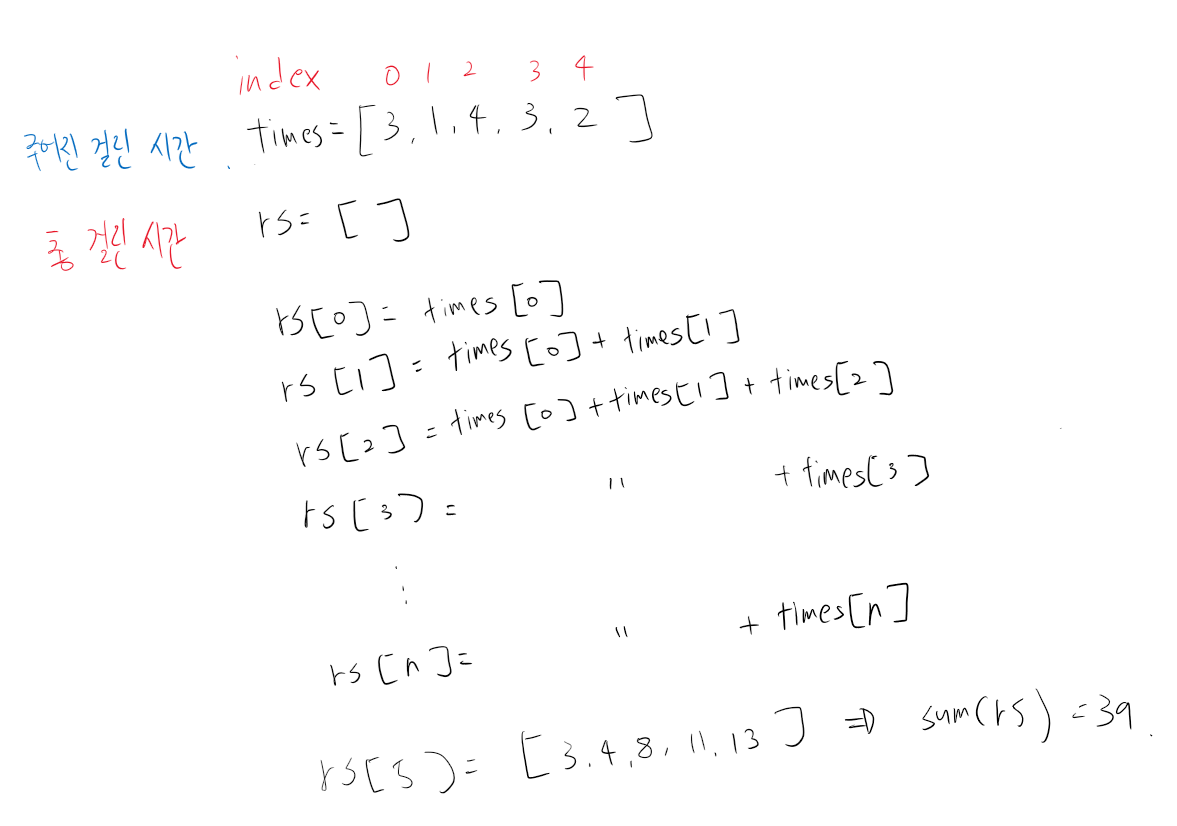 index 0 1 2 3 4
주어진 걸린 시간 . times = [3, 1, 4, 3, 2 ]
총 걸린 시간 rs = [ ]
rs[0] = times [0]
rs [1] = times [0] + times[1]
rs [2] = times [0] + times[1] + times[2]
rs [3] = " + times[3]
⋮
rs [n] = " + times[n]
rs[5] = [3, 4, 8, 11, 13 ] ⇒ sum(rs) = 39.